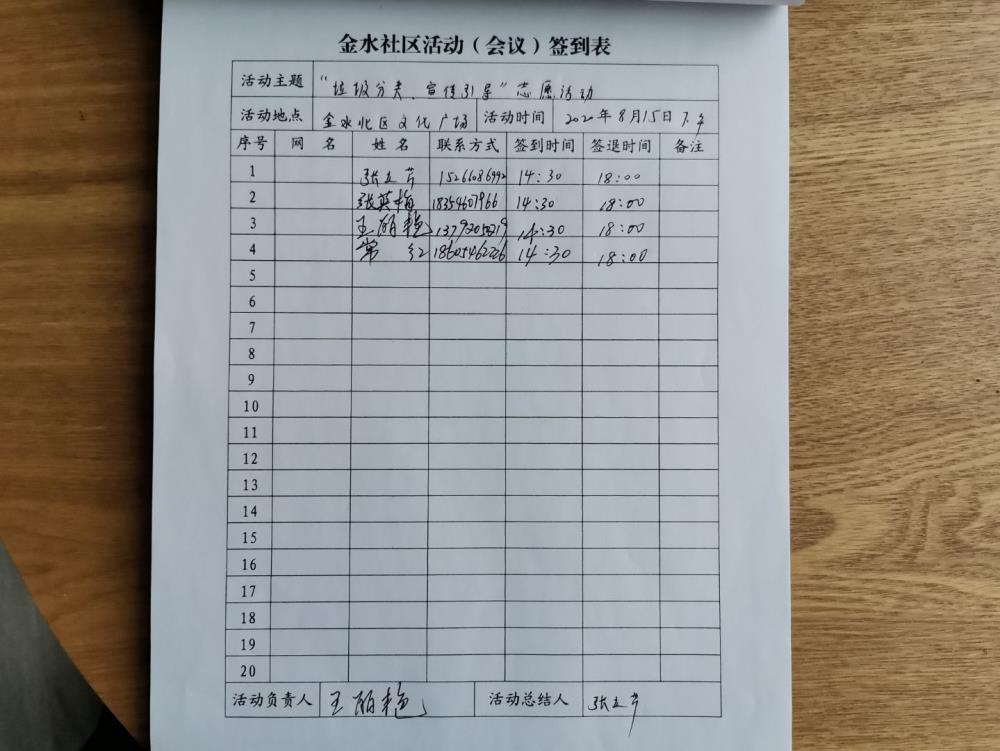 金水社区活动（会议）签到表
活动主题 “垃圾分类、宣传引导”志愿活动
活动地点 金水北区文化广场 活动时间 2022年8月15日下午
序号 网名 姓名 联系方式 签到时间 签退时间 备注
1 张立芹 15266086992 14:30 18:00
2 张英梅 18354607966 14:30 18:00
3 王丽艳 14:30 18:00
4 常红 18605462226 14:30 18:00
5
6
7
8
9
10
11
12
13
14
15
16
17
18
19
20
活动负责人 王丽艳 活动总结人 张立芹